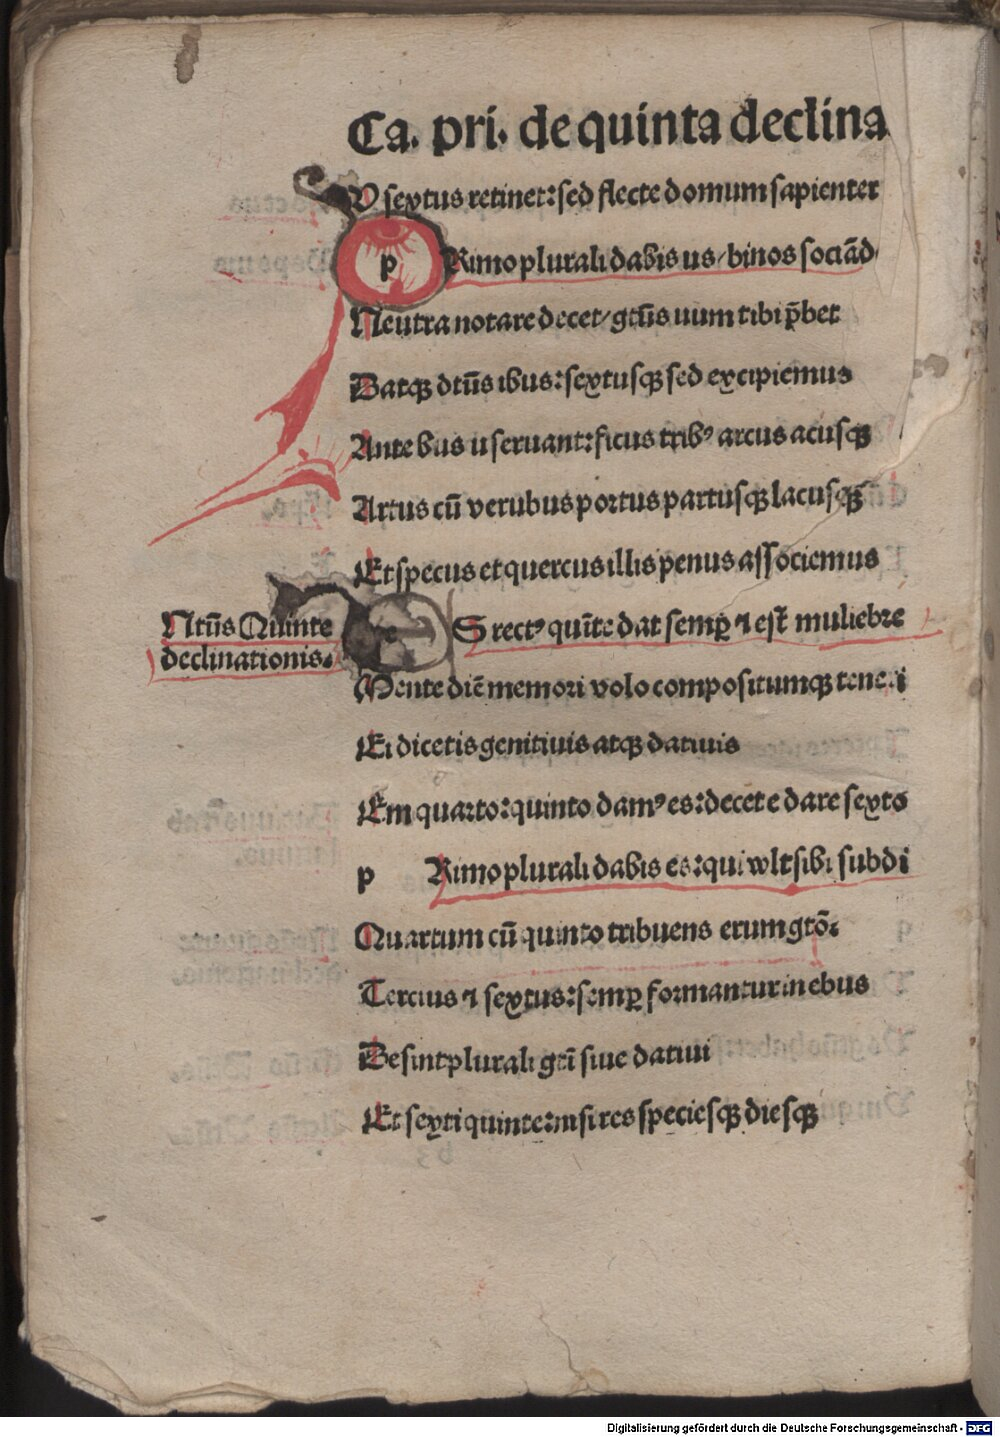 Ca. pri. de quinta declina
V sextus retinet: sed flecte domum sapienter
p Rimo plurali dabis us / binos sociãd
Neutra notare decet / gtũs uum tibi p̄bet
Datqꝫ dtũs ibus: sextusqꝫ sed excipiemus
Ante bus u seruant: ficus tribꝰ arcus acusqꝫ
Artus cũ verubus portus partusqꝫ lacusqꝫ
Et specus et quercus illis penus associemus
Ntũs Quinte
declinationis.
e S rectꝰ quĩte dat semp̱ ⁊ est muliebre
Mente diẽ memori volo compositumqꝫ teneri
Ei dicetis genitiuis atqꝫ datiuis
Em quarto: quinto damꝰ es: decet e dare sexto
p Rimo plurali dabis es: qui wlt sibi subdi
Quartum cũ quinto tribuens erum gtõ:
Tercius ⁊ sextus: semp̱ formantur in ebus
Desint plurali gtĩ siue datiui
Et sexti quinte: nisi res speciesqꝫ diesqꝫ
Digitalisierung gefördert durch die Deutsche Forschungsgemeinschaft - DFG